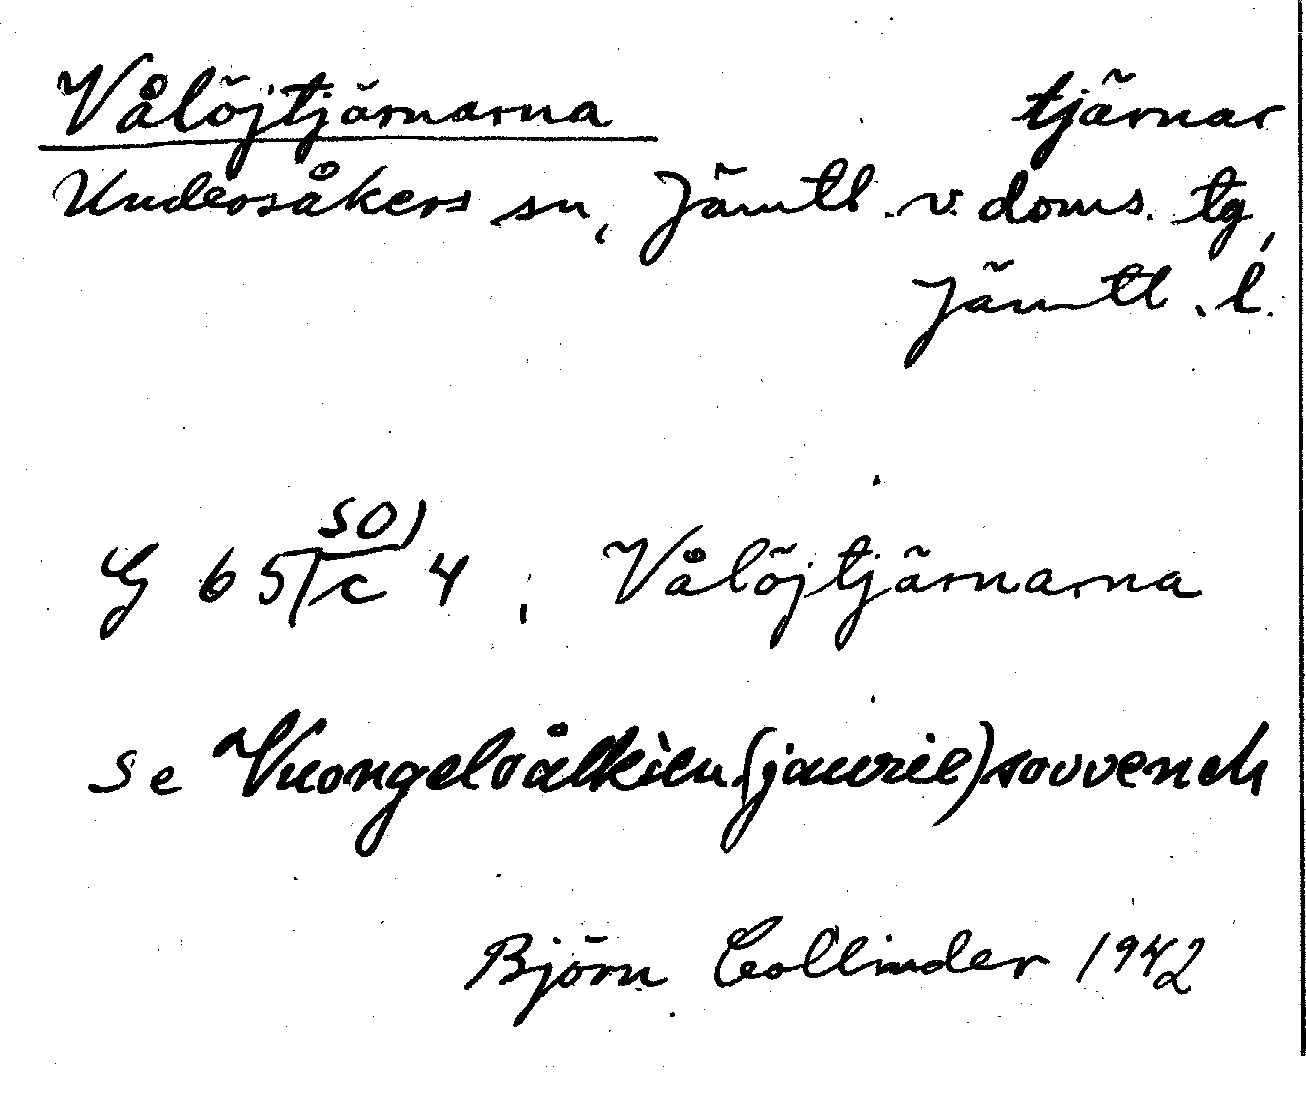 Vålöjtjärnarna tjärnar
Undersåkers sn, Jämtl. v. doms. tg,
Jämtl. l.
50)
G 65/c 4, Vålöjtjärnarna
se Vuongelvålkien(jaurie)souvenh
Björn Collinder 1942